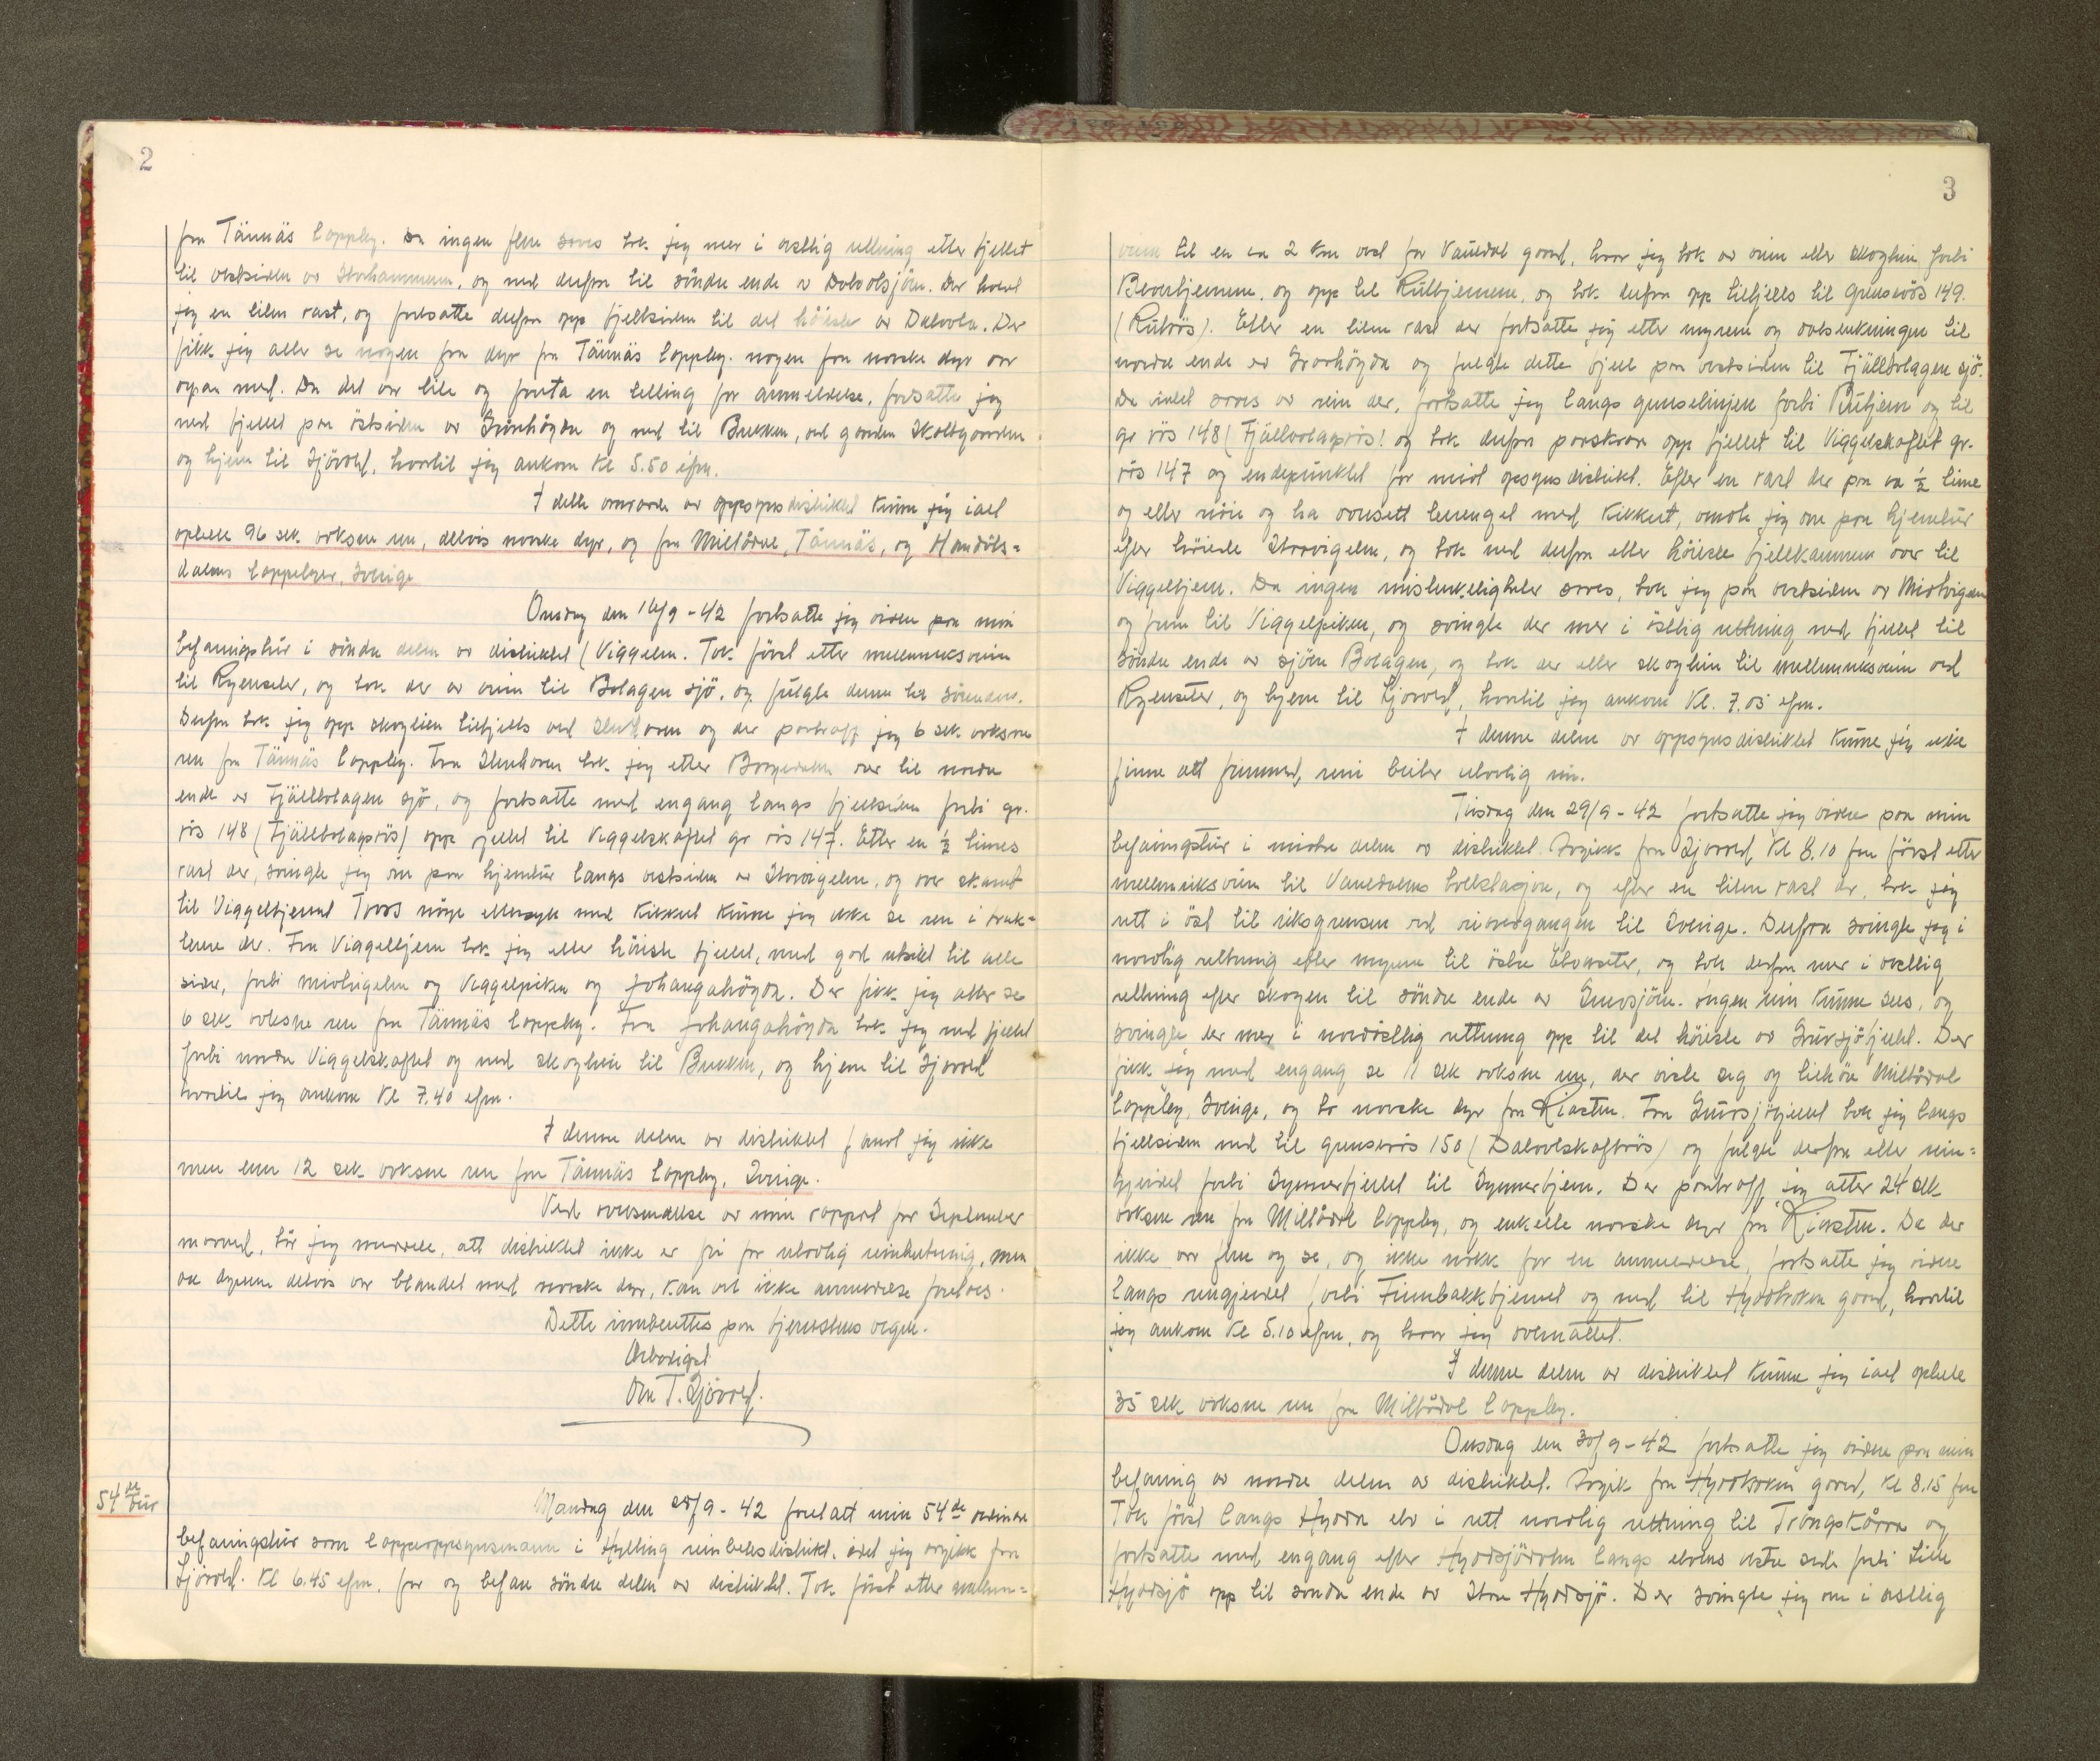 2
fra Tännäs lappby. Da ingen flere saaes tok jeg mer i vestlig retning etter fjellet
til vestsiden av Storhammeren, og ned derfra til söndre ende av Dalvolsjöen. Der holdt
jeg en liten rast, og fortsatte derfra opp fjellsiden til det höieste av Dalvola. Der
fikk jeg atter se nogen faa dyr fra Tännäs lappby. nogen faa norske dyr var
ogsaa med. Da det var lite og foreta en telling for anmeldelse, fortsatte jeg
ned fjellet paa östsiden av Grönhögda og ned til Brekken, ved gaarden Skottgaarden
og hjem til Sjövold, hvortil jeg ankom Kl 5.50 efm.
I dette omraade av oppsynsdistriktet kunne jeg ialt
optelle 96 stk. voksne ren, delvis norske dyr, og fra Mittådal, Tännäs, og Handöls=
dalens lappbyer, Sverige
Onsdag den 16/9 - 42 fortsatte jeg videre paa min
befaringstur i söndre delen av distriktet (Viggelen. Tok först etter mellemriksveien
til Ryenseter, og tok der av veien til Bolagen sjö, og fulgte denne til söndenden.
Derfra tok jeg opp skoglien tilfjells ved Stenhoven og der paatraff jeg 6 stk. voksne
ren fra Tännäs lappby. Fra Stenhoven tok jeg etter Borgeraalen over til nordre
ende av Fjällbolagen sjö, og fortsatte med engang langs fjellsiden forbi gr.
rös 148 (Fjällbolagsrös) opp fjellet til Viggelskaftet gr rös 147. Etter en ½ times
rast der, svingte jeg om paa hjemtur langs vestsiden av Storvigelen, og over skaret
til Viggeltjernet Tross nöye ettersyn med Kikkert kunne jeg ikke se ren i trak=
tene der. Fra Viggeltjern tok jeg etter höieste fjellet, med god utsikt til alle
sider, forbi midtvigelen og Viggelpiken og Johangahögda. Der fikk jeg atter se
6 stk voksne ren fra Tännäs lappby. Fra Johangahögda tok jeg ned fjellet
forbi nordre Viggelskaftet og ned skoglien til Brekken, og hjem til Sjövold
hvortil jeg ankom Kl 7.40 efm.
I denne delen av distriktet fant jeg ikke
mere enn 12 stk voksne ren fra Tännäs lappby, Sverige.
Ved oversendelse av min rapport for September
maaned, bör jeg meddele, att distriktet ikke er fri for ulovlig reinbeiting, men
da dyrene delvis var blandet med norske dyr, kan vel ikke anmeldelse foretaes.
Dette innberettes paa tjenestens vegne.
Ærbödigst
Ole T. Sjövold.
54de tur
Mandag den 28/9 - 42 foretatt min 54de ordinære
befaringstur som lappeoppsynsmann i Hylling reinbeitesdistrikt, idet jeg avgikk fra
Sjövold. Kl 6.45 efm. for og befare söndre delen av distriktet. Tok först etter mellem=
3
veien til en ca 2 km vest for Vauldal gaard, hvor jeg tok av veien etter skoglien forbi
Bevertjernene, og opp til Rutjernene, og tok derfra opp tilfjells til grensrös 149.
(Rutrös). Etter en liten rast der fortsatte jeg etter myrene og dalsenkningen til
nordre ende av Graahögda og fulgte dette fjell paa vestsiden til Fjällbolagen sjö.
Da intet saaes av rein der, fortsatte jeg langs grenselinjen forbi Rutjern og til
gr rös 148 (Fjällbolagsrös) og tok derfra paaskraa opp fjellet til Viggelskaftet gr.
rös 147 og endepunktet for mitt opsynsdistrikt. Efter en rast der paa ca ½ time
og etter nöie og ha avsett terrenget med Kikkert, vendte jeg om paa hjemtur
efter höieste Storvigelen, og tok ned derfra etter höieste fjellkammen over til
Viggeltjern. Da ingen misleukeligheter saaes, tok jeg paa vestsiden av Midtvigelen
og frem til Viggelpiken, og svingte der mer i östlig rettning ned fjellet til
söndre ende av sjöen Bolagen, og tok der etter skoglien til mellemriksveien ved
Ryenseter, og hjem til Sjövold, hvortil jeg ankom Kl. 7.05 efm.
I denne delen av oppsynsdistriktet kunne jeg ikke
finne att fremmed rein beitet ulovlig inn.
Tirsdag den 29/9 - 42 fortsatte jeg videre paa min
befaringstur i midtre delen av distriktet. Avgikk fra Sjövold Kl 8.10 fm först etter
mellemriksveien til Vauldalens tollstasjon, og efter en liten rast der, tok jeg
rett i öst til riksgrensen ved reinovergangen til Sverige. Derfra svingte jeg i
nordlig rettning efter myrene til östre Ebaseter, og tok derfra mer i vestlig
rettning efter skogen til söndre ende av Grursjöen. Ingen rein kunne sees, og
svingte der mer i nordvestlig rettning opp til det höieste av Grursjöfjellet. Der
fikk jeg med engang se 11 stk voksne ren, der viste seg og tilhöre Mittådal
lappby, Sverige, og to norske dyr fra Riasten. Fra Grursjöfjellet tok jeg langs
fjellsiden ned til grensrös 150 (Dalvolskaftrös) og fulgte derfra etter rein=
gjerdet forbi Synnerfjellet til Synnertjern. Der paatraff jeg atter 24 stk
voksne ren fra Mittådal lappby, og enkelte norske dyr fra Riasten. Da der
ikke var flere og se, og ikke nokk for en anmeldelse, fortsatte jeg videre
langs reingjerdet forbi Finnbakktjernet og ned til Hyddkroken gaard, hvortil
jeg ankom Kl 5.10 efm, og hvor jeg overnattet.
I denne delen av distriktet kunne jeg ialt optelle
35 stk voksne ren fra Mittådal lappby.
Onsdag den 30/9 - 42 fortsatte jeg videre paa min
befaring av nordre delen av distriktet. Avgik fra Hyddkroken gaard, Kl 8.15 fm
Tok först langs Hydda elv i rett nordlig rettning til Trångskåra og
fortsatte med engang efter Hyddsjödalen langs elvens östre side forbi Lille
Hyddsjö opp til söndre ende av Store Hyddsjö. Der svingte jeg om i östlig